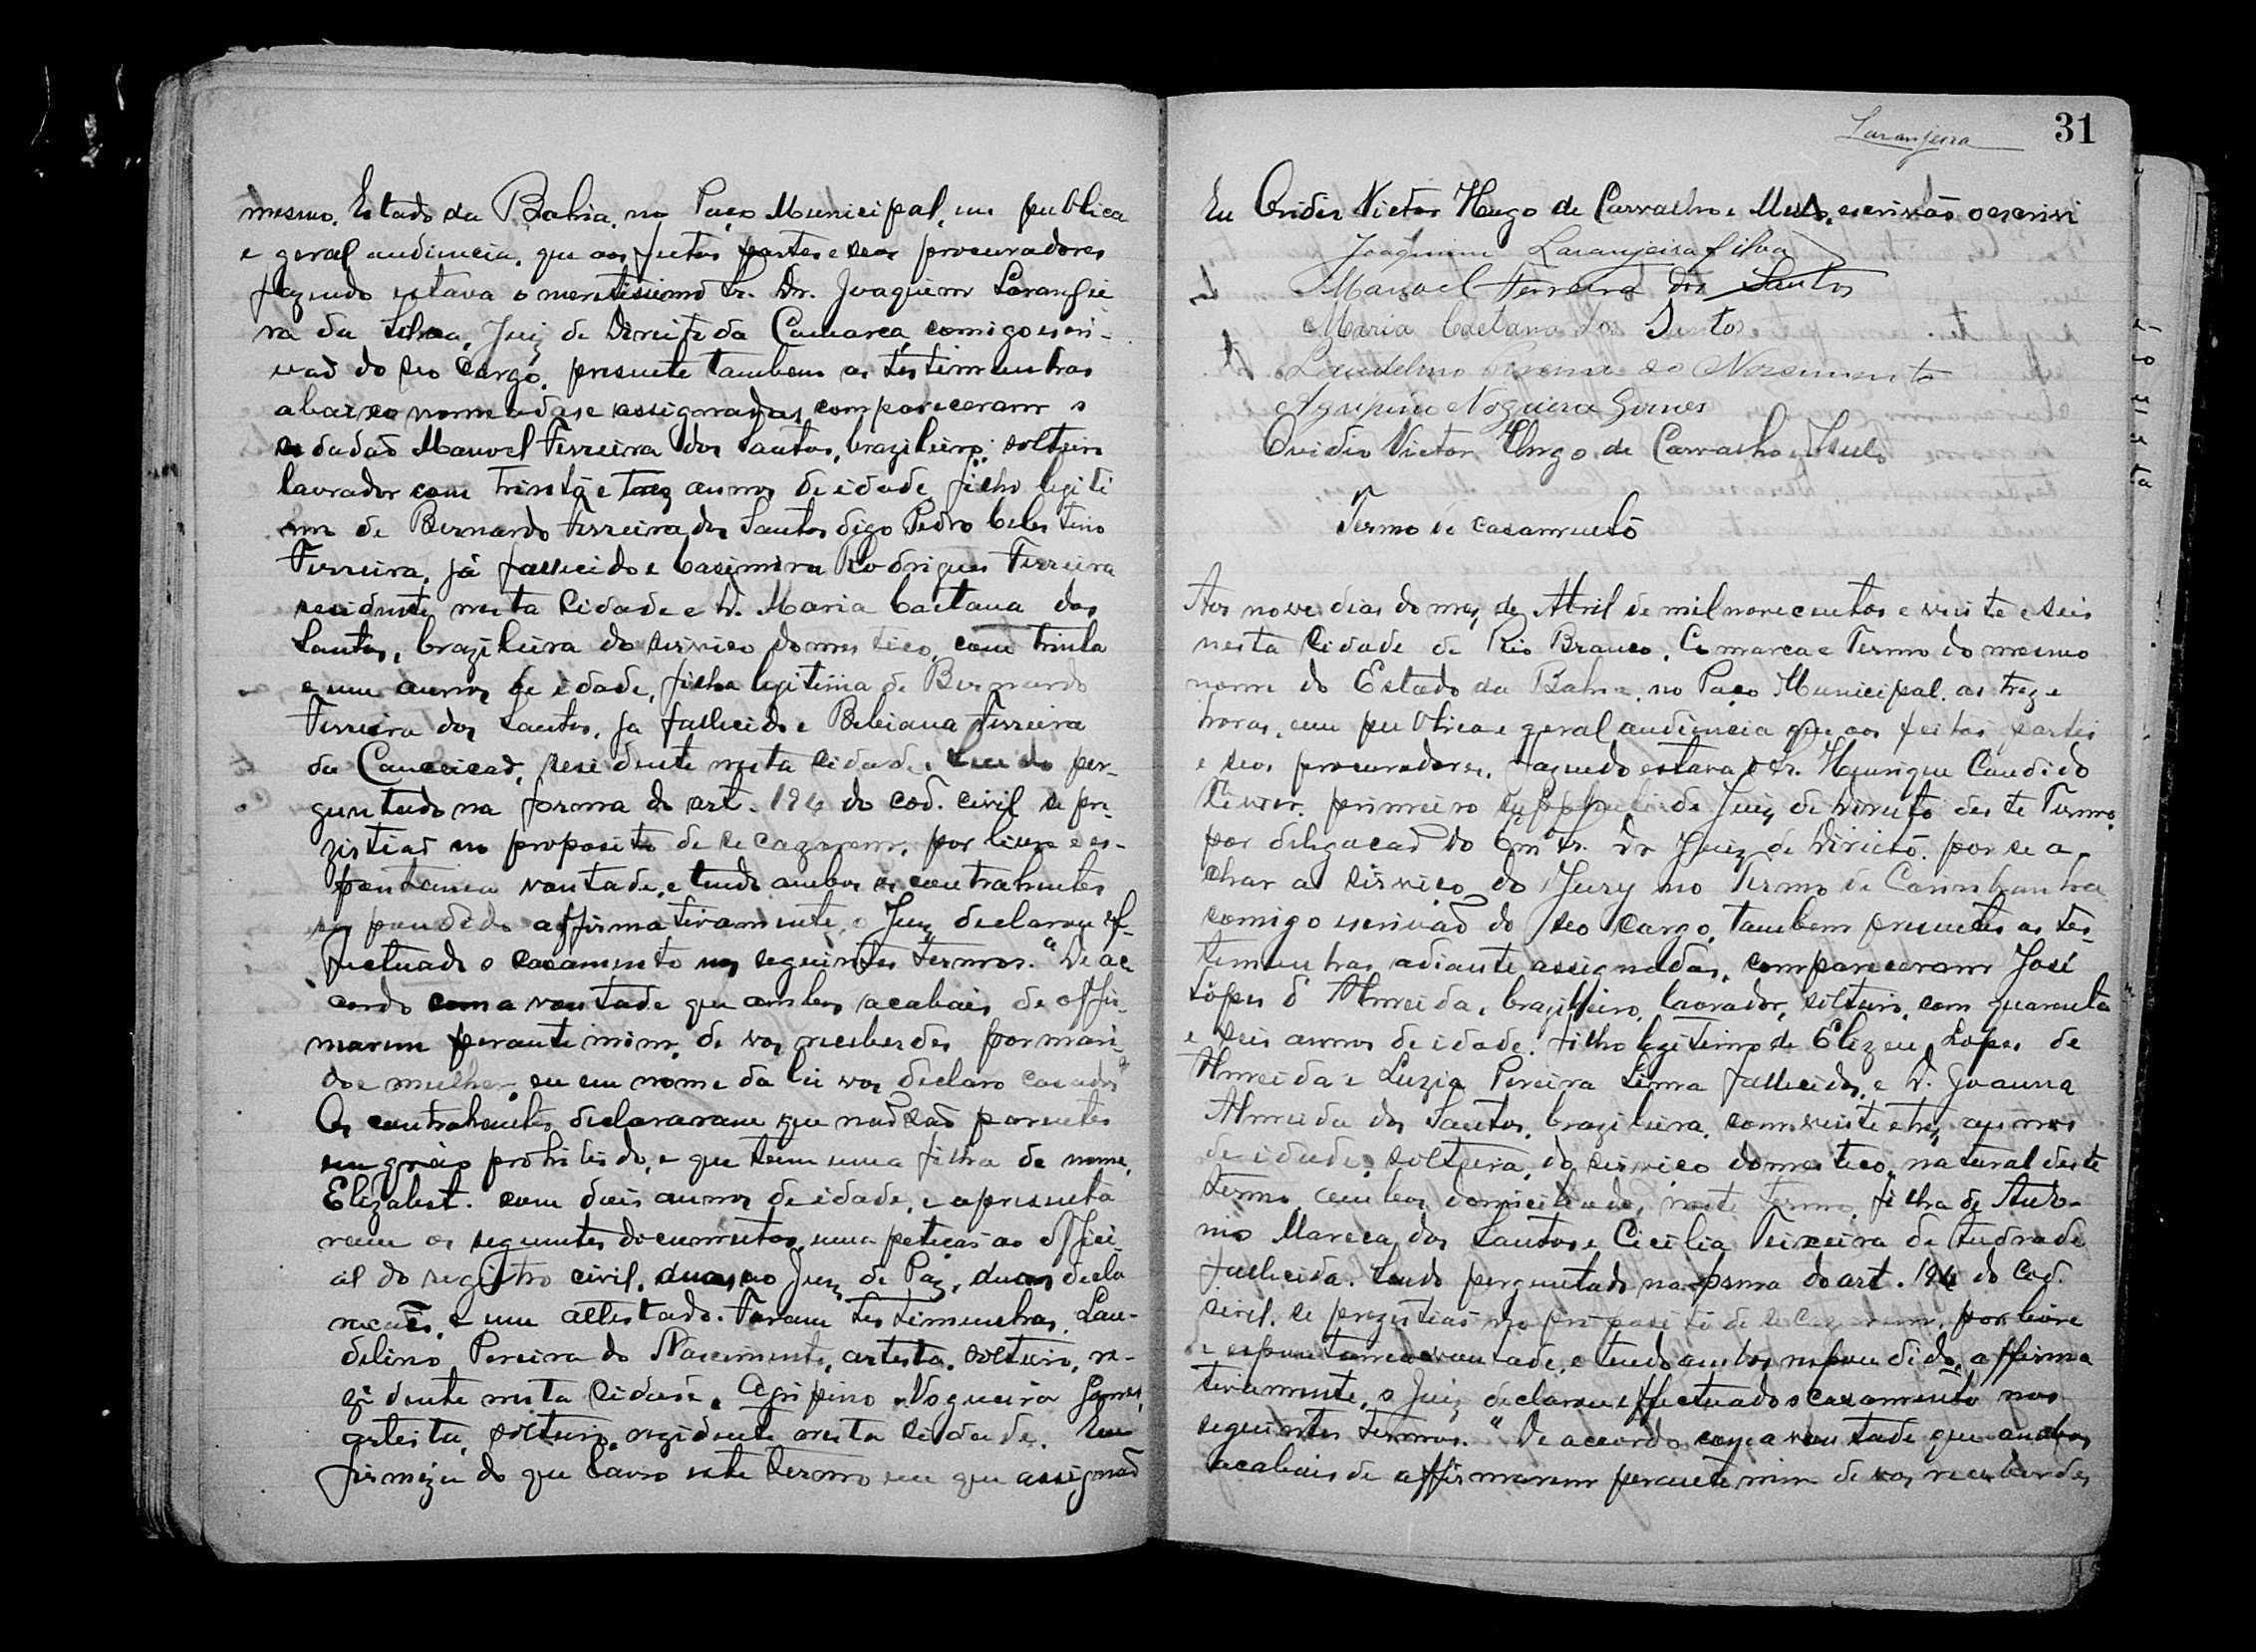 mesmo. Estado da Bahia, no Paço Municipal, em publica
e geral audiencia, que aos feitos partes e seos procuradores
fazendo estava o meretissimo Sr. Dr. Joaquim Laranjei
ra da Silva, Juiz de Direito da Comarca, comigo escri-
vaõ do seo cargo, presente tambem as testimunhas
abaixo nomeadas e assignadas, compareceram o
cidadaõ Manoel Ferreira dos Santos, brazileiro, solteiro
lavrador com trinta e trez annos de idade, filho legiti
mo de Bernardo Ferreira dos Santos digo Pedro Celestino
Ferreira, já fallecido e Casimira Rodrigues Ferreira
residente nesta Cidade e D. Maria Caetana dos
Santos, brazileira do serviço domestico, com trinta
e um annos de idade, filha legitima de Bernardo
Ferreira dos Santos, ja fallecido e Bibiana Ferreira
da Conceicaõ, residente nesta cidade. Sendo per-
guntado na forma do art. 194 do cod. civil se per-
zistiaõ no proposito de se cazarem, por livre e es-
pontanea vontade, e tendo ambos os contrahentes
respondido affirmativamente, o Juiz declarou ef-
fectuado o casamento nos seguintes termos. "De ac
cordo com a vontade que ambos acabais de affir-
marem perante mim, de vos receberdes por mari-
do e mulher, eu em nome da lei vos declaro casados"
Os contrahentes declararam que naõ saõ parentes
em gráo prohibido, e que tem uma filha de nome,
Elizabet. com dois annos de idade, e apresenta
ram os seguintes documentos, uma petiçaõ ao offici-
al do registro civil, duas ao Juiz de Paz, duas decla
racoẽs, e um attestado. Foram testimunhas. Lau-
delino Pereira do Nascimento, artista, solteiro, re-
zidente nesta Cidade, Agripino Nogueira Gomes,
artista, solteiro, rezidente nesta Cidade. Em
firmeza do que lavro este termo em que assignaõ
Laranjeira 31
Eu Ovidio Victor Hugo de Carvalho e Mello, escrivaõ o escrivi
Joaquim Laranjeira Silva
Manoel Ferreira dos Santos
Maria Caetana dos Santos
Laudelino Pereira do Nascimento
Agripino Nogueira Gomes
Ovidio Victor Hugo de Carvalho e Mello
Termo de casamento
Aos nove dias do mez de Abril de mil novecentos e vinte e seis
nesta Cidade de Rio Branco, Comarca e Termo do mesmo
nome do Estado da Bahia, no Paço Municipal, as treze
horas, em publica e geral audiencia que aos feitos partes
e seos procuradores, fazendo estava o Sr. Henrique Candido
primeiro supplente de Juiz de Direito deste Termo,
por delegacaõ do Exmº Sr. Dr Juiz de Direito, por se a-
char a serviço do Jury no Termo de Carinhanha
comigo escrivaõ do seo cargo, tambem presentes as tes-
temunhas adiante assignadas, compareceram José
Lopes d'Almeida, brazileiro, lavrador, solteiro, com quarenta
e seis annos de idade, filho legitimo de Elizeu Lopes de
Almeida e Luzia Pereira Lima fallecidos, e D. Joanna
Almeida dos Santos, brazileira, com vinte e trez annos
de idade, solteira, do serviço domestico, natural deste
termo, ambos domiciliados, neste termo, filha de Anto-
nio dos Santos e Cicilia Teixeira de Andrade
fallecida. Sendo perguntado na forma do art. 194 do Cod.
civil, se prezistiaõ no proposito de se cazarem, por livre
e espontanea vontade, e tendo ambos respondido, affirma
tivamente, o Juiz declarou effectuado o casamento nos
seguintes termos. "De accordo com a vontade que ambos
acabais de affirmarem perante mim de vos receberdes